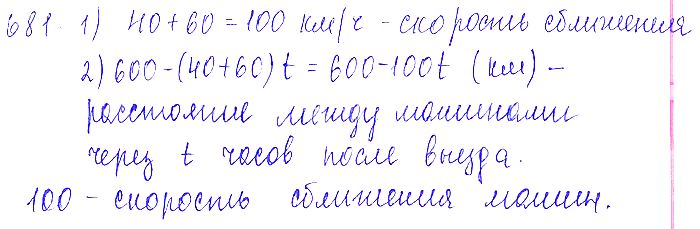 681. 1) 40 + 60 = 100 км/ч - скорость сближения
2) 600 - (40 + 60) t = 600 - 100t (км) -
расстояние между машинами
через t часов после выезда.
100 - скорость сближения машин.